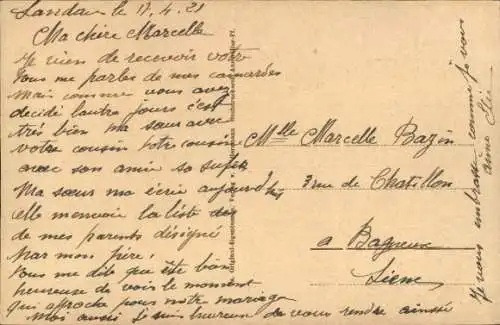 Landau le 17.4.21
Ma chère Marcelle
Je viens de recevoir votre
Vous me parlez de mes camarades
Mais comme vous avez
décidé lautre jours c'est
très bien ma sœur avec
votre cousin notre cousin
avec son amie
Ma sœur ma écrie aujourd'hui
elle menvoie la liste des
de mes parents désigné
par mon père,
Vous me dite que ête bien
heureuse de voir le moment
qui approche pour notre mariage
Moi aussi je suis heureux de vous rendre aussie
Je vous embrasse comme je vous
aime
Mlle Marcelle Bazin
3 rue de Chatillon
a Bagneux
Seine